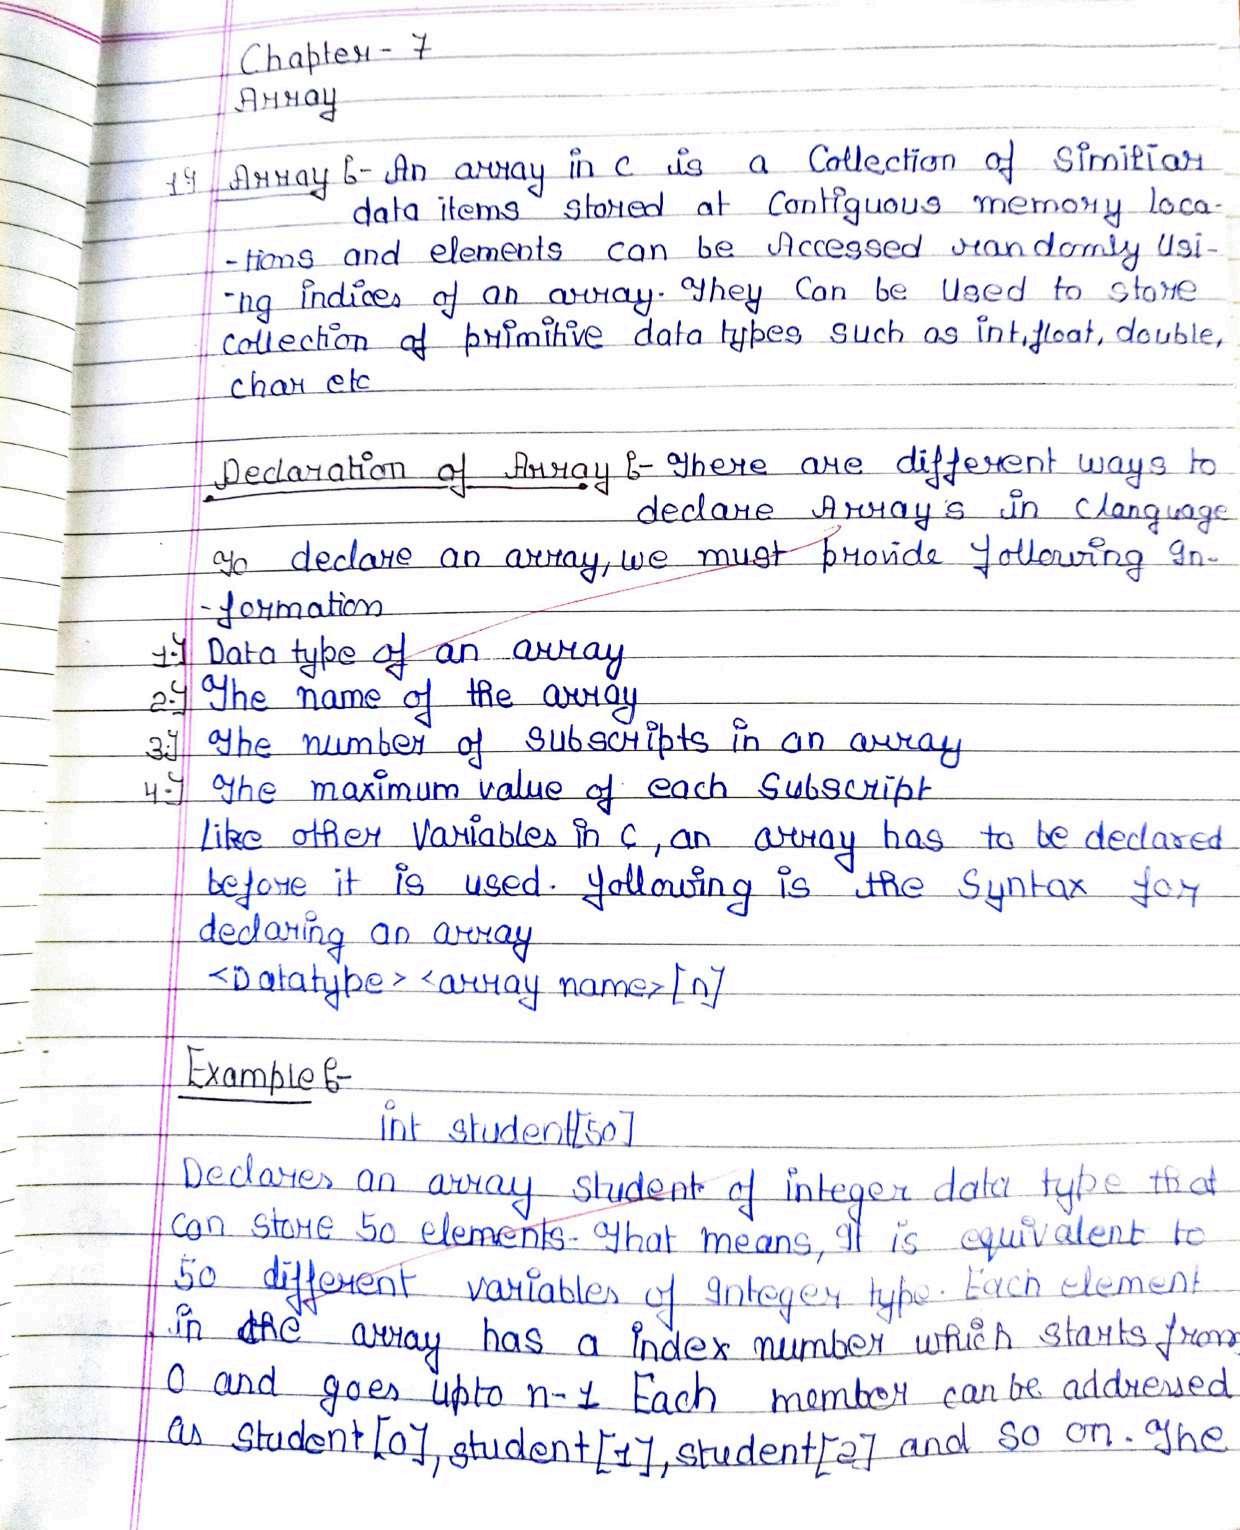 Chapter - 7
Array
1) Array :- An array in C is a Collection of Similiar
data items stored at Contiguous memory loca-
-tions and elements can be Accessed randomly Usi-
-ng indices of an array. They Can be Used to store
collection of primitive data types such as int, float, double,
char etc
Declaration of Array :- There are different ways to
declare Array's in C language
To declare an array, we must provide following In-
-formation
1.) Data type of an array
2.) The name of the array
3.) The number of subscripts in an array
4.) The maximum value of each Subscript
Like other Variables in C, an array has to be declared
before it is used. Following is the Syntax for
declaring an array
<Datatype> <array name> [n]
Example :-
int student[50]
Declares an array student of integer data type that
can store 50 elements. That means, It is equivalent to
50 different variables of Integer type. Each element
in the array has a index number which starts from
0 and goes upto n-1 Each member can be addressed
as student[0], student[1], student[2] and so on. The